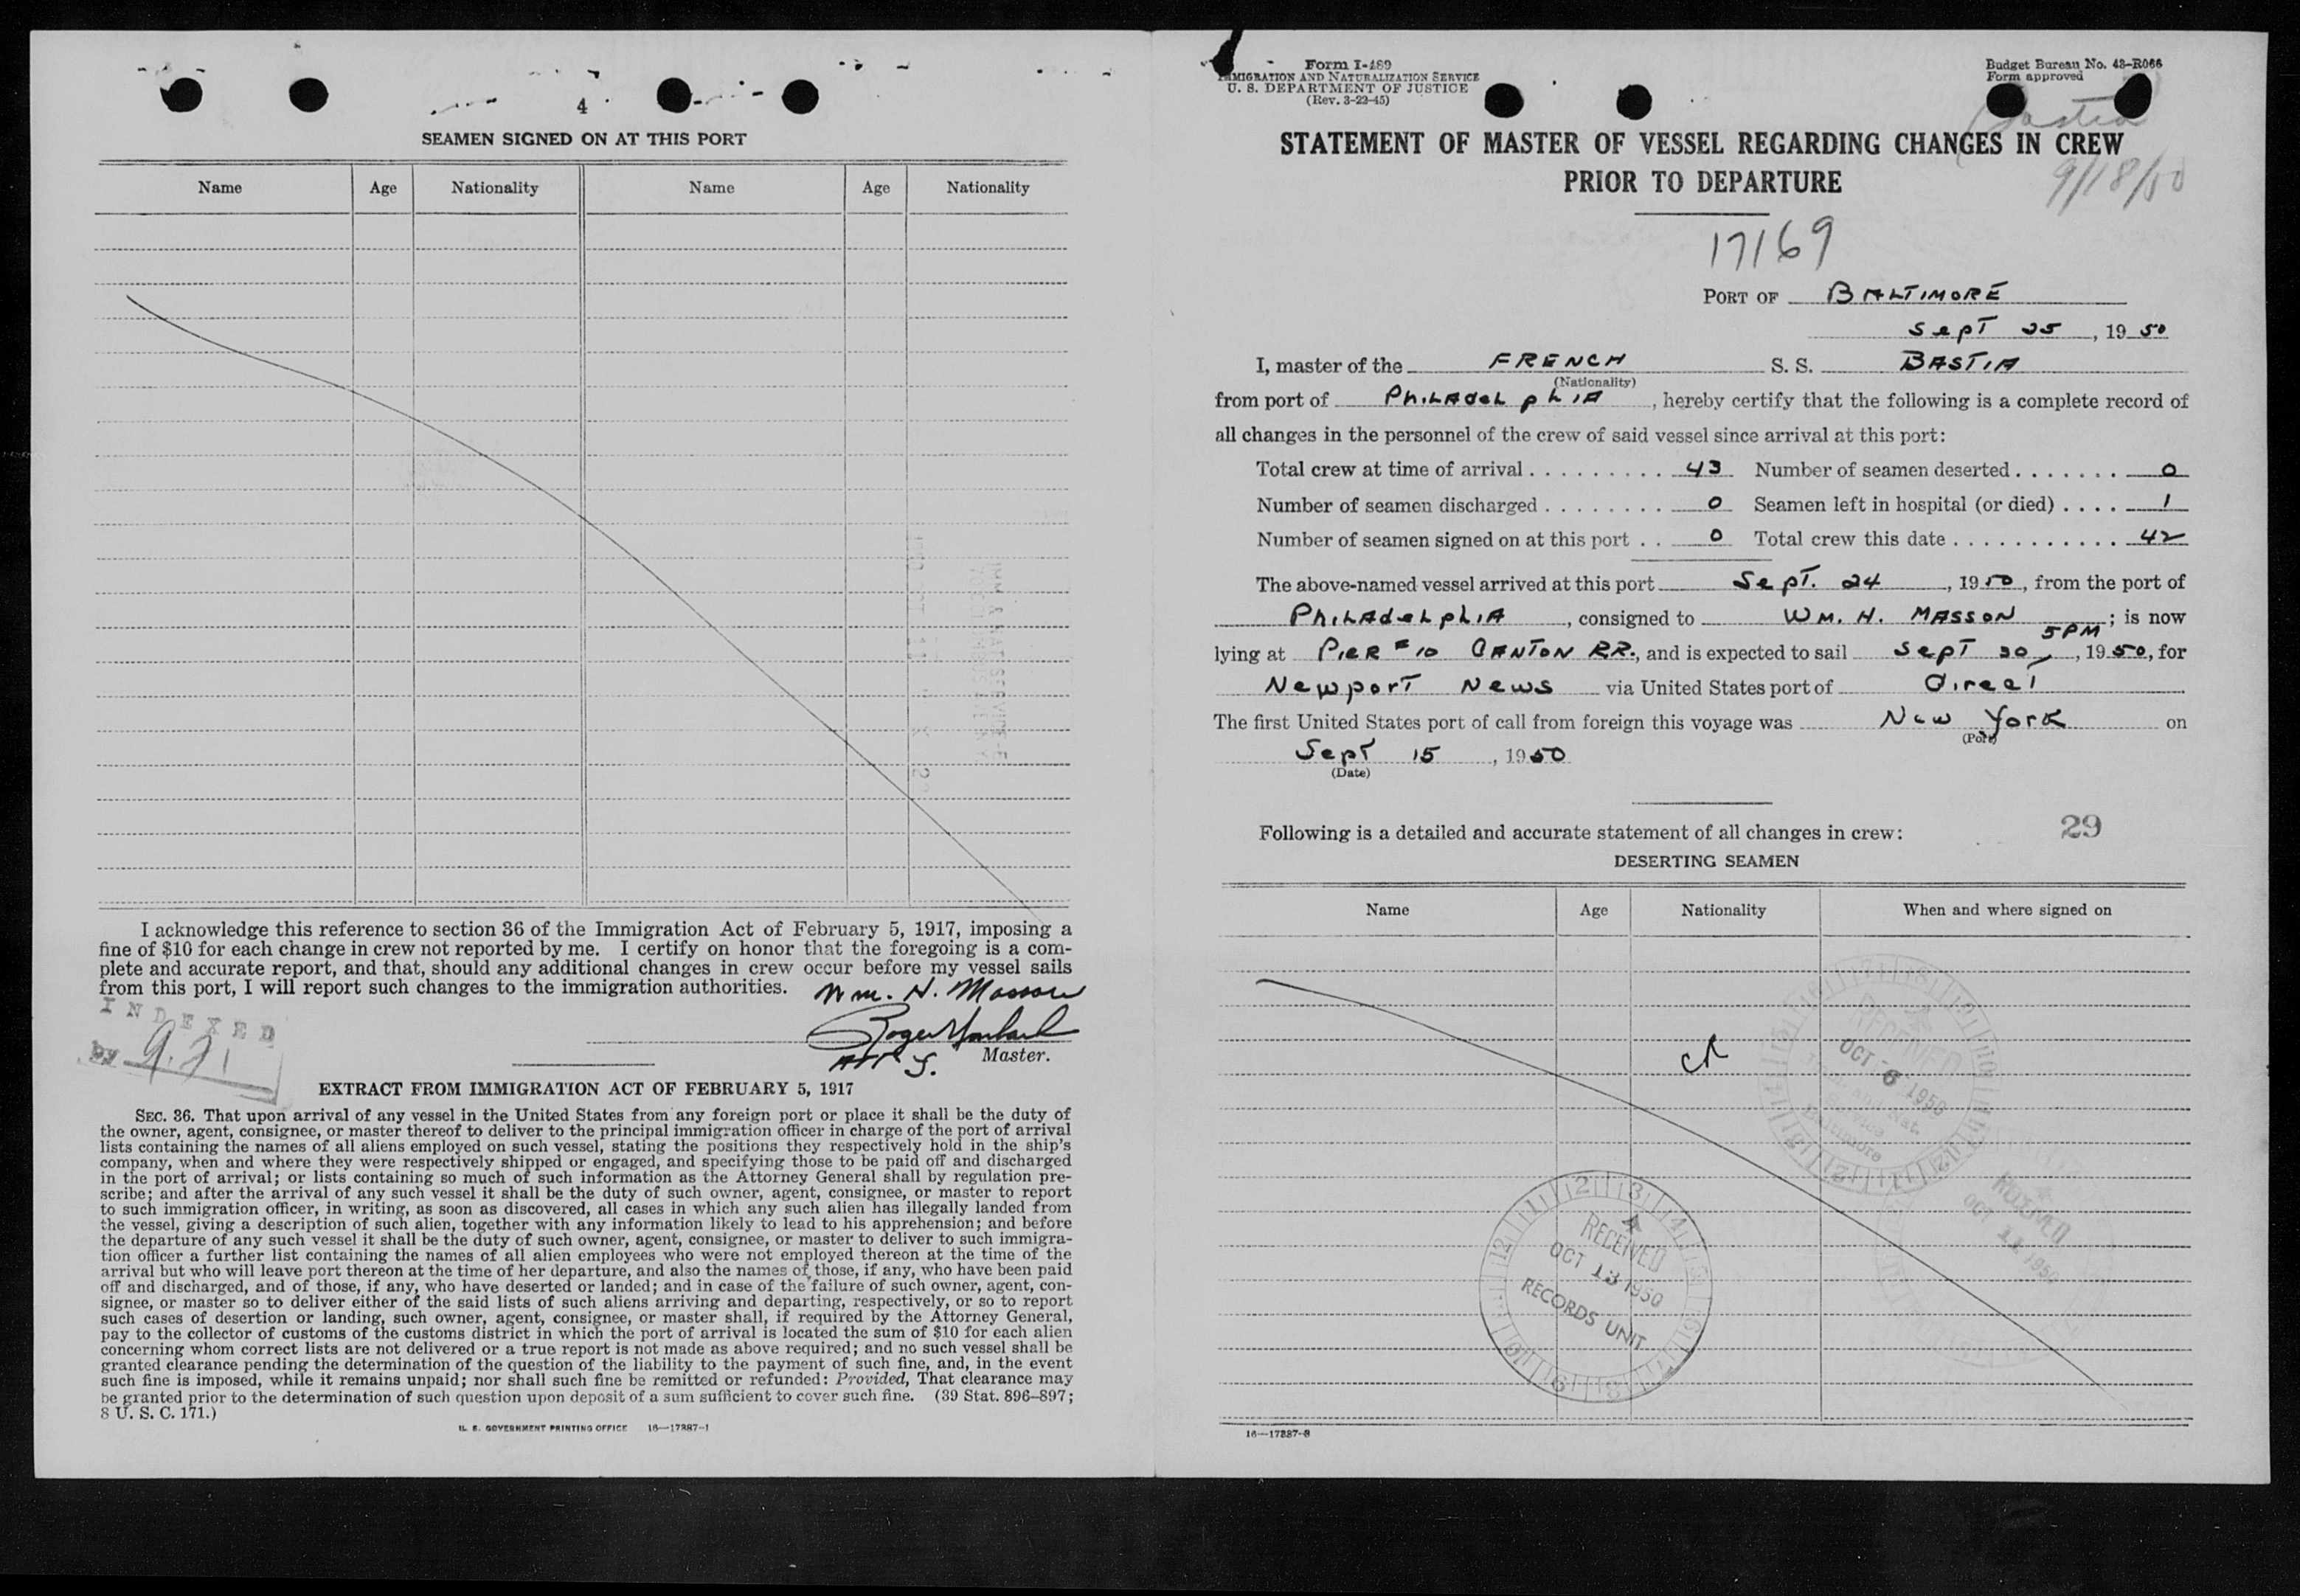 4
SEAMEN SIGNED ON AT THIS PORT
Name Age Nationality Name Age Nationality
I acknowledge this reference to section 36 of the Immigration Act of February 5, 1917, imposing a
fine of $10 for each change in crew not reported by me. I certify on honor that the foregoing is a com-
plete and accurate report, and that, should any additional changes in crew occur before my vessel sails
from this port, I will report such changes to the immigration authorities.
Wm. H. Masson
INDEXED
by
Master.
EXTRACT FROM IMMIGRATION ACT OF FEBRUARY 5, 1917
SEC. 36. That upon arrival of any vessel in the United States from any foreign port or place it shall be the duty of
the owner, agent, consignee, or master thereof to deliver to the principal immigration officer in charge of the port of arrival
lists containing the names of all aliens employed on such vessel, stating the positions they respectively hold in the ship's
company, when and where they were respectively shipped or engaged, and specifying those to be paid off and discharged
in the port of arrival; or lists containing so much of such information as the Attorney General shall by regulation pre-
scribe; and after the arrival of any such vessel it shall be the duty of such owner, agent, consignee, or master to report
to such immigration officer, in writing, as soon as discovered, all cases in which any such alien has illegally landed from
the vessel, giving a description of such alien, together with any information likely to lead to his apprehension; and before
the departure of any such vessel it shall be the duty of such owner, agent, consignee, or master to deliver to such immigra-
tion officer a further list containing the names of all alien employees who were not employed thereon at the time of the
arrival but who will leave port thereon at the time of her departure, and also the names of those, if any, who have been paid
off and discharged, and of those, if any, who have deserted or landed; and in case of the failure of such owner, agent, con-
signee, or master so to deliver either of the said lists of such aliens arriving and departing, respectively, or so to report
such cases of desertion or landing, such owner, agent, consignee, or master shall, if required by the Attorney General,
pay to the collector of customs of the customs district in which the port of arrival is located the sum of $10 for each alien
concerning whom correct lists are not delivered or a true report is not made as above required; and no such vessel shall be
granted clearance pending the determination of the question of the liability to the payment of such fine, and, in the event
such fine is imposed, while it remains unpaid; nor shall such fine be remitted or refunded: Provided, That clearance may
be granted prior to the determination of such question upon deposit of a sum sufficient to cover such fine. (39 Stat. 896–897;
8 U. S. C. 171.)
U. S. GOVERNMENT PRINTING OFFICE 16—17887-1
Form I-489
IMMIGRATION AND NATURALIZATION SERVICE
U. S. DEPARTMENT OF JUSTICE
(Rev. 3-22-45)
Budget Bureau No. 43-R066
Form approved
Bastia
9/18/50
STATEMENT OF MASTER OF VESSEL REGARDING CHANGES IN CREW
PRIOR TO DEPARTURE
17169
PORT OF BALTIMORE
Sept 25, 1950
I, master of the FRENCH S. S. BASTIA
(Nationality)
from port of PhiLAdeLphIA, hereby certify that the following is a complete record of
all changes in the personnel of the crew of said vessel since arrival at this port:
Total crew at time of arrival . . . . . . . . . 43 Number of seamen deserted . . . . . . . 0
Number of seamen discharged . . . . . . . . 0 Seamen left in hospital (or died) . . . . 1
Number of seamen signed on at this port . . 0 Total crew this date . . . . . . . . . . . . 42
The above-named vessel arrived at this port Sept. 24, 1950, from the port of
PhiLAdeLphIA, consigned to WM. H. MASSON; is now
5PM
lying at PIER #10 CANTON RR., and is expected to sail Sept 30, 1950, for
Newport News via United States port of direct
The first United States port of call from foreign this voyage was New York on
(Port)
Sept 15, 1950
(Date)
Following is a detailed and accurate statement of all changes in crew:
29
DESERTING SEAMEN
Name Age Nationality When and where signed on
RECEIVED
OCT 6 1950
Baltimore
RECEIVED
OCT 13 1950
RECORDS UNIT
RECEIVED
OCT 11 1950
16—17887-3